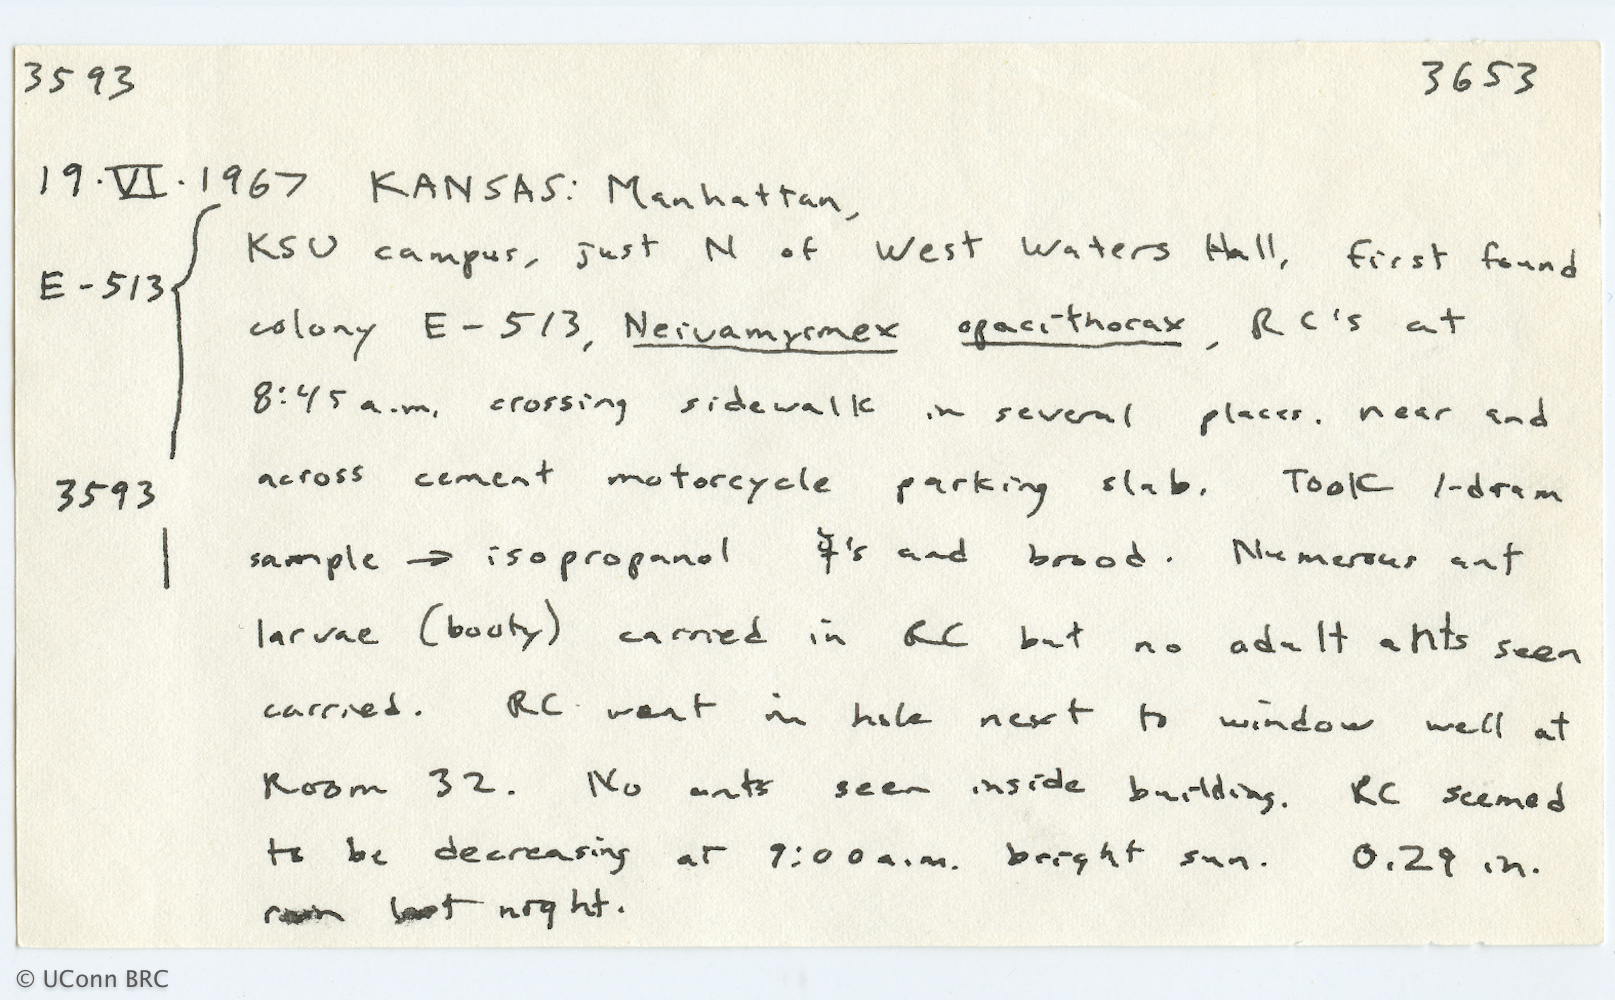 3593 3653
19·VI·1967 KANSAS: Manhattan,
KSU campus, just N of West Waters Hall, first found
E-513
colony E-513, Neivamyrmex opacithorax, RC's at
8:45 a.m. crossing sidewalk in several places. near and
across cement motorcycle parking slab. Took 1-dram
3593
sample → isopropanol ☿'s and brood. Numerous ant
larvae (booty) carried in RC but no adult ants seen
carried. RC went in hole next to window well at
Room 32. No ants seen inside building. RC seemed
to be decreasing at 9:00 a.m. bright sun. 0.29 in.
rain last night.
© UConn BRC